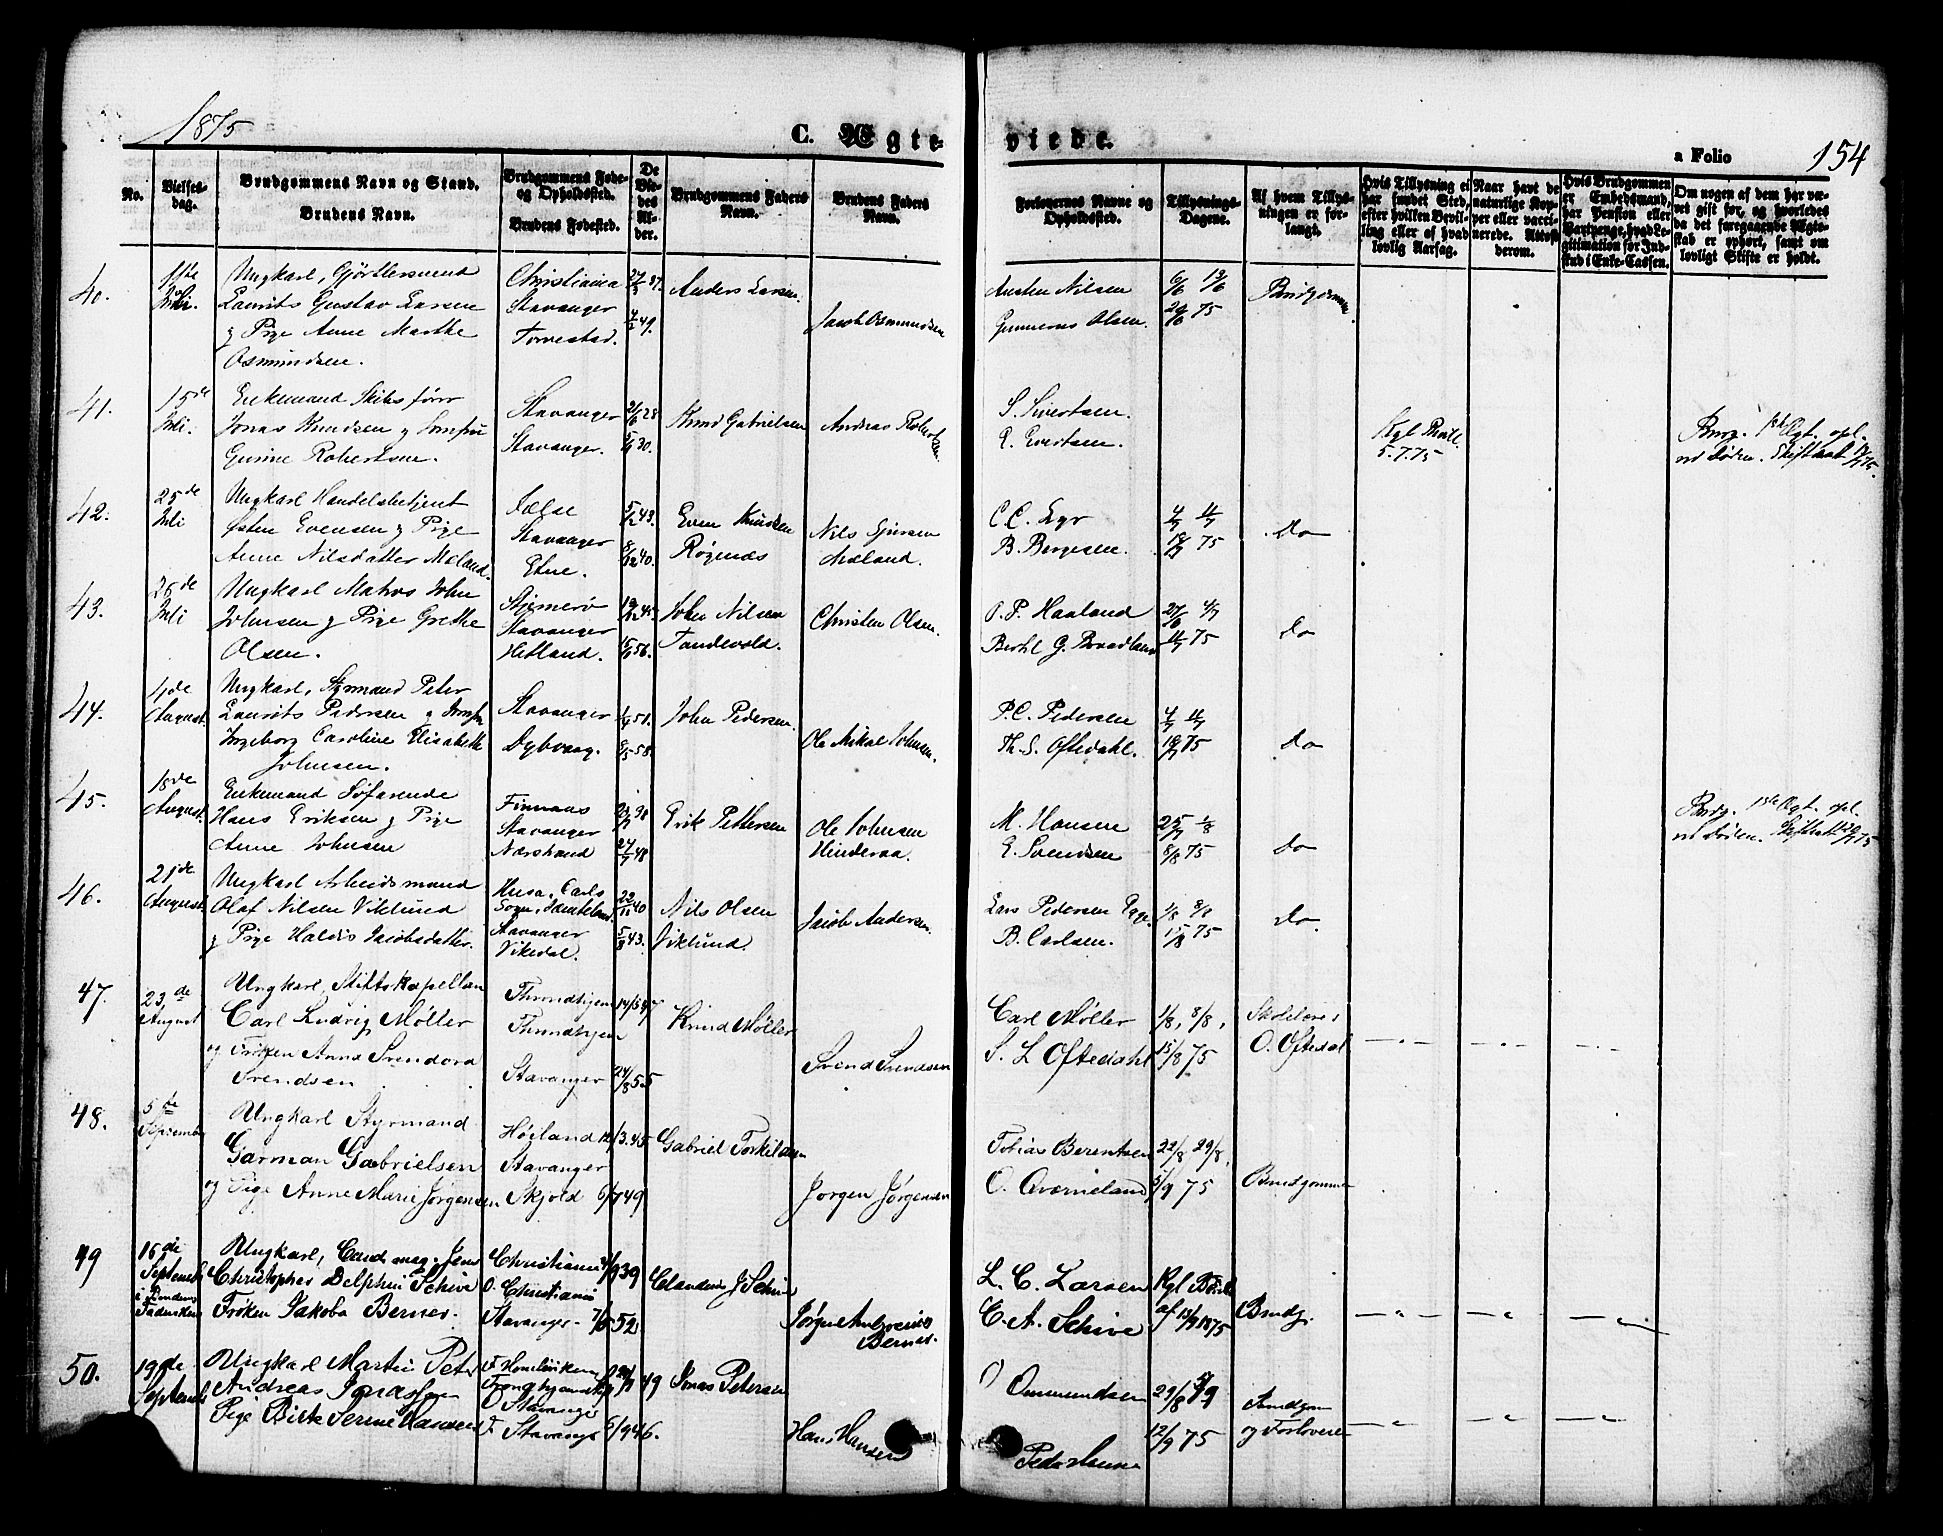 1875
C. Ægte-
viede.
a Folio
154
No.
Vielses-
dag.
Brudgommens Navn og Stand.
Brudens Navn.
Brudgommens Føde-
og Opholdssted.
Brudens Fødested.
De
Vie-
des
Al-
der.
Brudgommens Faders
Navn.
Brudens Faders
Navn.
Forlovernes Navne og
Opholdssted.
Tillysnings-
Dagene.
Af hvem Tillys-
ningen er for-
langt.
Hvis Tillysning ei
har fundet Sted,
efter hvilken Bevil-
ling eller af hvad
lovlig Aarsag.
Naar havt de
naturlige Kop-
per eller vacci-
nerede. Attest
derom.
Hvis Brudgommen
er Embedsmand,
har Pension eller
Vartpenge, hvad Le-
gitimation for Ind-
skud i Enke-Cassen.
Om nogen af dem har væ-
ret gift før, og hvorledes
da det foregaaende Ægte-
skab er ophørt, samt om
lovligt Skifte er holdt.
40.
11te
Juli.
Ungkarl, Gjørtlersvend
Laurits Gustav Larsen
og Pige Anne Marthe
Osmundsen.
Christiania
Stavanger
Torvestad.
Anders Larsen
Jacob Osmundsen
Austen Nilsen 6/6 13/6
Gunnerus Olsen 20/6 75
Brudgommen
41.
15de
Juli.
Enkemand Skibsfører
Jonas Knudsen og Jomfru
Gurine Robertsen.
Stavanger 2/6 28
Stavanger. 30.
Knud Gabrielsen
Andreas Robertsen
S. Sivertsen.
E. Evertsen.
Kgl Bevill.
5.7.75
Brug. 1ste Ægt. opl.
ved Døden. Skifteatt 75.
42.
25de
Juli
Ungkarl Handelsbetjent
Østen Evensen og Pige
Anne Nilsdatter Mæland.
Stavanger
Etne.
5/12 43.
8/12 40.
Even Knudsen
Røgenæs
Nils
Mæland.
C. C. Lyr 4/7 11/7
B. Børgesen. 18/7 75
Do
43.
25de
Juli
Ungkarl Matros John
Johnsen og Pige Grethe
Olsen.
Stjernerø
Stavanger
Hetland.
45.
56.
John Nilsen
Tandevold.
Christen Olsen.
O. P. Haaland 27/6 4/7
Berthl G. Braadland 11/7 75
Do
44.
4de
August.
Ungkarl, Styrmand Peter
Laurits Pedersen og Jomfru
Ingeborg Caroline Elisabeth
Johnsen.
Stavanger
Dybvaag.
51.
58.
John Pedersen
Ole Mikal Johnsen.
P. C. Pedersen 4/7 11/7
Th. S. Oftedahl. 18/7 75
Do
45.
18de
August.
Enkemand Søfarende
Hans Eriksen og Pige
Anne Johnsen
Finnaas
Stavanger
Nærstrand
38
24/7 48
Erik Pettersen
Ole Johnsen
Hinderaa.
M. Hansen 25/7 1/8
E. Svendsen 8/8 75
Do
Brug. 1ste Ægt. opl.
ved Døden. Skifteatt 75
46.
21de
August.
Ungkarl Arbeidsmand
Olaf Nilsen Viklund
og Pige Haldis Jacobsdatter.
Husa, Carls
Sogn, Jæmteland.
Stavanger
Vikedal.
40
43.
Nils Olsen
Viklund.
Jacob Andersen.
Lars Pedersen 1/8 8/8
B. Carlsen. 15/8 75
Do.
47.
23de
August
Ungkarl, Stiftskapellan
Carl Ludvig Møller
og Frøken Anna Svendora
Svendsen
Throndhjem 14/5 47
Throndhjem
Stavanger 24/8 55
Knud Møller
Svend Svendsen
Carl Møller 1/8, 8/8,
S. L. Oftedahl 15/8 75
Skolelærer
O. Oftedal
48.
5te
September
Ungkarl Styrmand
Garman Gabrielsen
og Pige Anne Marie Jørgensen
Høiland 12/3 45
Stavanger
Skjold 6/7 49
Gabriel Torkildsen
Jørgen Jørgensen
Tobias Berentsen 22/8 29/8,
O. Qværneland 5/9 75
Brudgommen
49
16de
Septemb
i Brudens
Faders Hus
Ungkarl, Cand. mag. Jens
Christopher Delphin Schive
Frøken Jakoba Berner.
Christiania 9 39
O. Christiania
Stavanger 7/5 52
Claudius J Schive
Jørgen
Berner.
L. C. Larsen Kgl Bevill
C. A. Schive af 13/9 1875
Brudg.
50.
19de
Septemb
Ungkarl Martin Peter
Andreas Jonassen
Pige Birte Serine Hansen
O Stavanger
F. Stavanger 6/9 46.
49
Jonas Petersen
Hans Hansen
Ommundsen 29/8 5/9
Peder Hansen
12/9 75
Brudgom
og Forlovere